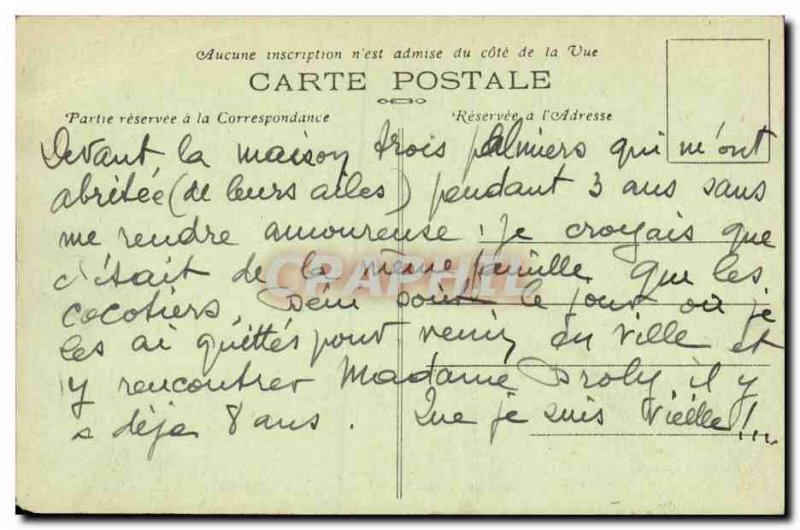 Aucune inscription n'est admise du côté de la Vue
CARTE POSTALE
Partie réservée à la Correspondance
Réservée à l'Adresse
Devant la maison trois palmiers qui m'ont
abritée (de leurs ailes) pendant 3 ans sans
me rendre amoureuse ! je croyais que
c'était de la même famille que les
cocotiers, soit le jour où je
les ai quittés pour venir en ville et
y rencontrer Madame Broly, il y
a déja 8 ans. Que je suis vieille !...
CRAPHIL